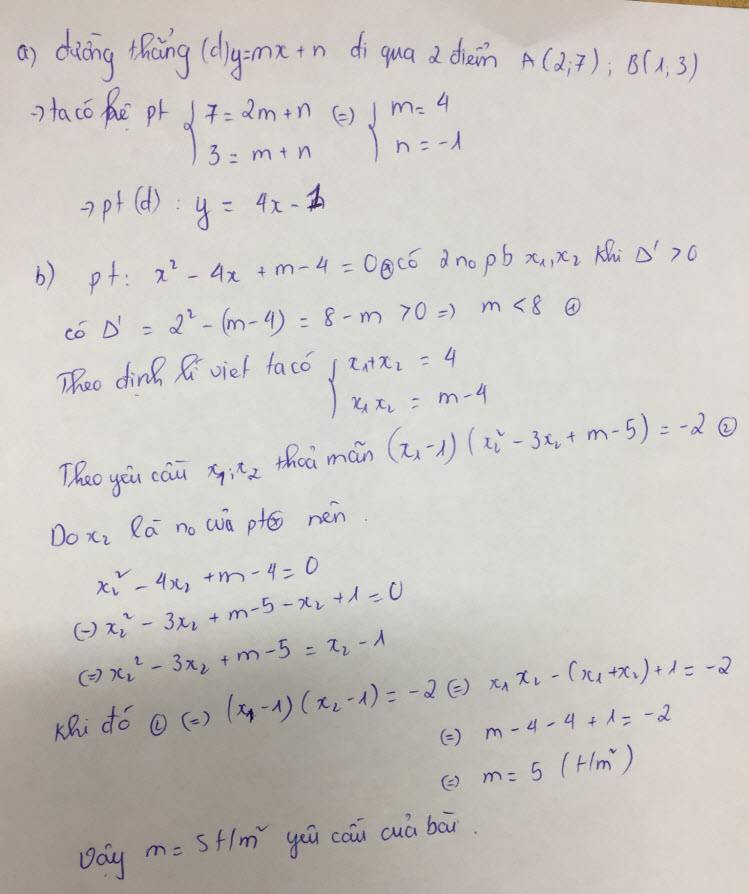 a) đường thẳng (d)y=mx+n đi qua 2 điểm A(2;7); B(1;3)
→ ta có hệ pt { 7 = 2m+n (=) { m = 4
3 = m+n n = -1
→ pt (d) : y = 4x - 1
b) pt: x² - 4x + m - 4 = 0 ⊛ có 2 no pb x₁, x₂ khi Δ' > 0
có Δ' = 2² - (m-4) = 8 - m > 0 => m < 8 ①
Theo định lí viet ta có { x₁+x₂ = 4
x₁x₂ = m-4
Theo yêu cầu x₁; x₂ thoả mãn (x₁-1)(x₂² - 3x₂ + m - 5) = -2 ②
Do x₂ là no của pt⊛ nên.
x₂² - 4x₂ + m - 4 = 0
(=) x₂² - 3x₂ + m - 5 - x₂ + 1 = 0
(=) x₂² - 3x₂ + m - 5 = x₂ - 1
khi đó ② (=) (x₁-1)(x₂-1) = -2 (=) x₁x₂ - (x₁+x₂) + 1 = -2
(=) m - 4 - 4 + 1 = -2
(=) m = 5 (t/m²)
Vậy m = 5 t/m² yêu cầu của bài.